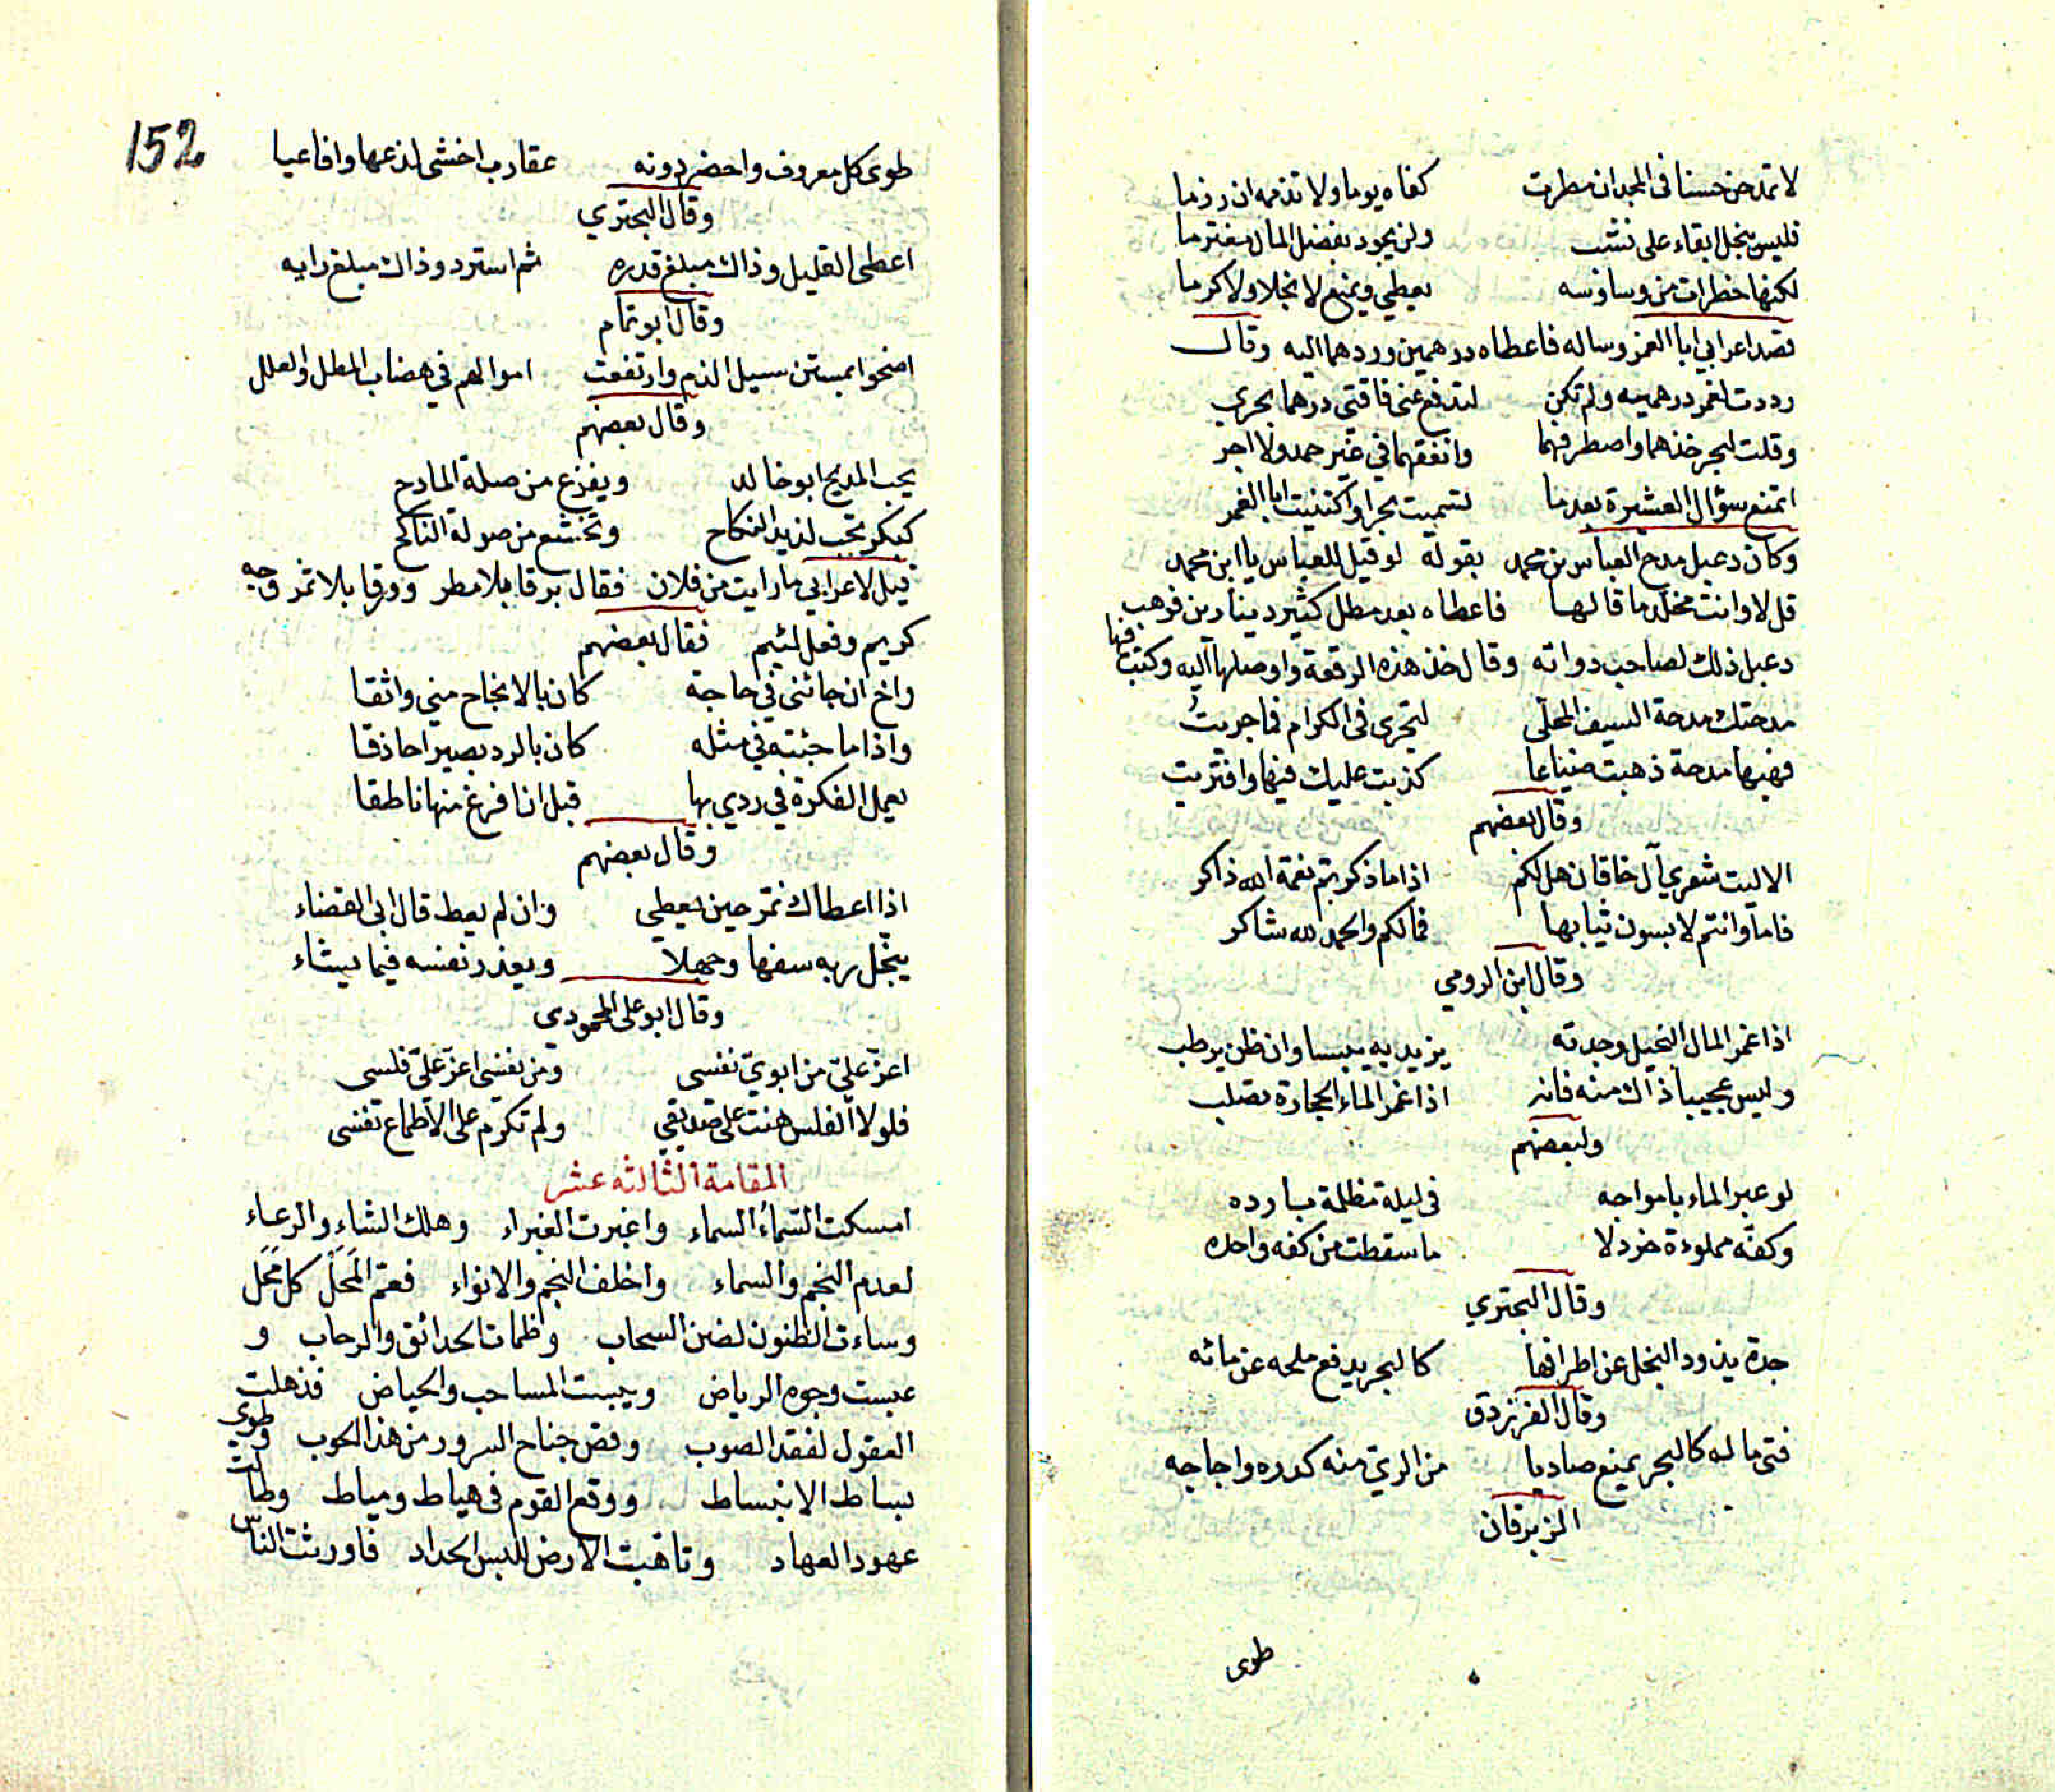 لا تمدحن حسنا في المجد ان مطرت كفاه يوما ولا تذمه ان رزما
فليس يبخل ابقاء على نشب ولن يجود بفضل المال مغترما
لكنها خطرات من وساوسه يعطي ويمنع لا بخلا ولا كرما
قصد اعرابي ابا الغمر وساله فاعطاه درهمين وردهما اليه وقال
رددت لغمر درهميه ولم تكن لتدفع عني فاقتي درهما بحري
وقلت لبحر خذهما واصطرفهما وانفقهما في غير حمد ولا اجر
اتمنع سؤال العشيرة بعد ما تسميت بحرا واكتنيت ابا الغمر
وكان دعبل مدح العباس بن محمد بقوله لو قيل للعباس يا ابن محمد
قل لا وانت مخلد ما قالها فاعطاه بعد مطل كثير دينارين فوهب
دعبل ذلك لصاحب دواته وقال خذ هذه الرقعة واوصلها اليه وكتب فيها
مدحتك مدحة السيف المحلى لتجري في الكرام فما جريت
فهبها مدحة ذهبت ضياعا كذبت عليك فيها وافتريت
وقال بعضهم
الا ليت شعري آل خاقان هل لكم اذا ما ذكرتم نعمة الله ذاكر
فاما وانتم لابسون ثيابها فمالكم والحمد لله شاكر
وقال ابن الرومي
اذا غمر المال البخيل وجدته يزيد به يبسا وان ظن يرطب
وليس عجيبا ذاك منه فانه اذا غمر الماء الحجارة تصلب
ولبعضهم
لو عبر الماء بامواجه في ليلة مظلمة بارده
وكفه مملوءة خردلا ما سقطت من كفه واحده
وقال البحتري
جدة يذود البخل عن اطرافها كالبحر يدفع ملحه عن مائه
وقال الفرزدق
فتى ماله كالبحر يمنع صاديا من الري منه كدره واجاجه
الزبرقان
طوى
152
طوى كل معروف واحضر دونه عقارب اخشى لذعها وافاعيا
وقال البحتري
اعطى القليل وذاك مبلغ قدره ثم استرد وذاك مبلغ رايه
وقال ابو تمام
اضحوا بمستن سيل الذم وارتفعت اموالهم في هضاب المطل والعلل
وقال بعضهم
يحب المديح ابو خالد ويفزع من صلة المادح
كبكر تحب لذيذ النكاح وتخشع من صولة الناكح
قيل لاعرابي ما رايت من فلان فقال برقا بلا مطر وورقا بلا ثمر وجه
كريم وفعل لئيم فقال بعضهم
واخ ان جائني في حاجة كان بالانجاح مني واثقا
واذا ما جئته في مثله كان بالرد بصيرا حاذقا
يعمل الفكرة في ردي بها قبل ان افرغ منها ناطقا
وقال بعضهم
اذا اعطاك قتر حين يعطي وان لم يعط قال ابى القضاء
يبخل ربه سفها وجهلا ويعذر نفسه فيما يشاء
وقال ابو على المحمودي
اعز علي من ابوي نفسى ومن نفسى اعز علي فلسى
فلولا الفلس هنت على صديقي ولم تكرم على الاطماع نفسى
المقامة الثالثه عشر
امسكت السماء السماء واغبرت الغبراء وهلك الشاء والرعاء
لعدم النجم والسماء واخلف النجم والانواء فعم المحل كل محل
وساءت الظنون لضن السحاب وظمات الحدائق والرحاب و
عبست وجوه الرياض ويبست المساحب والحياض فذهلت
العقول لفقد الصوب وقص جناح السرور من هذا الحوب وطوى
بساط الانبساط ووقع القوم في هياط ومياط وطالت
عهود العهاد وتاهبت الارض للبس الحداد فاورثت الناس